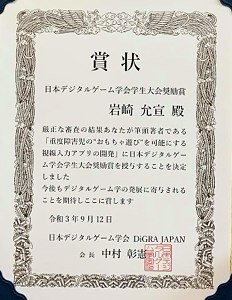 賞状
日本デジタルゲーム学会学生大会奨励賞
岩﨑 允宣 殿
厳正な審査の結果あなたが筆頭著者である
「重度障害児の“おもちゃ遊び”を可能にする
視線入力アプリの開発」に日本デジタルゲー
ム学会学生大会奨励賞を授与することを決定
しました
今後もデジタルゲーム学の発展に寄与される
ことを期待しここに賞します
令和3年9月12日
日本デジタルゲーム学会 DiGRA JAPAN
会長 中村 彰憲